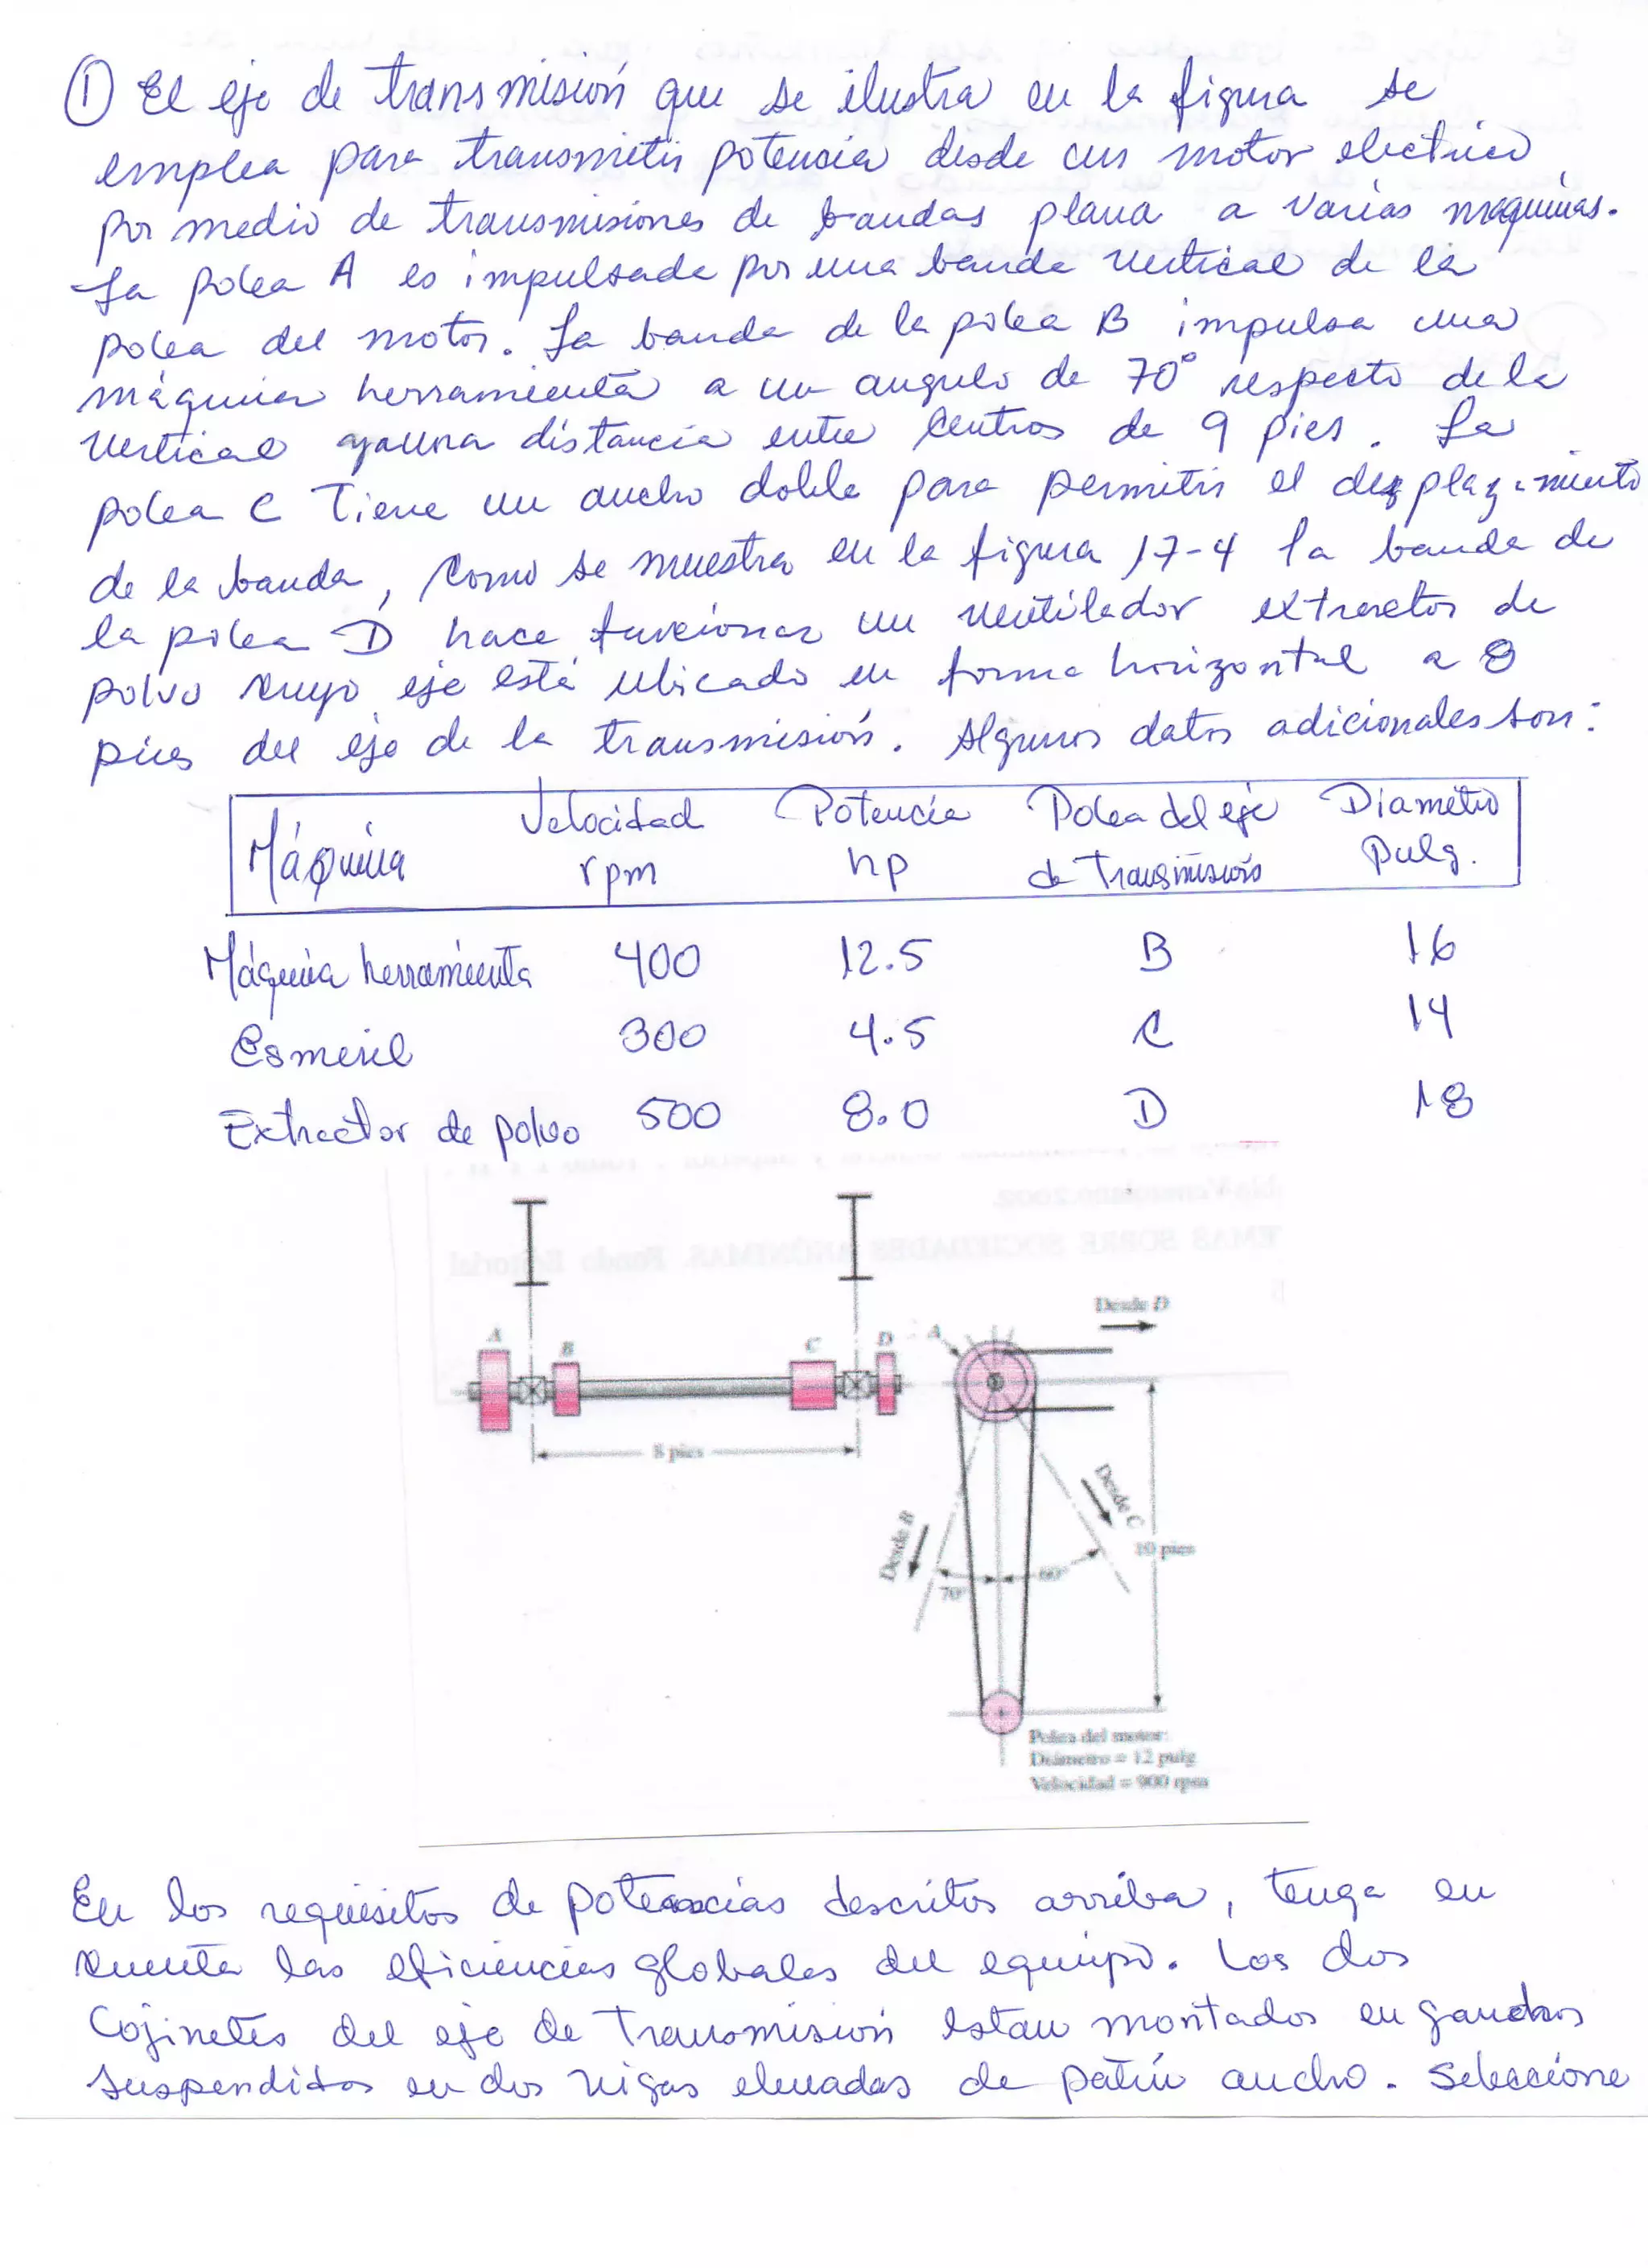 ① El eje de transmisión que se ilustra en la figura se
emplea para transmitir potencia desde un motor electrico
por medio de transmisiones de bandas plana a varias maquinas.
La polea A es impulsada por una banda vertical de la
polea del motor. La banda de la polea B impulsa una
máquina herramienta a un angulo de 70° respecto de la
vertical y a una distancia entre centros de 9 pies. La
polea C tiene un ancho doble para permitir el desplazamiento
de la banda, como se muestra en la figura 17-4 la banda de
la polea D hace funcionar un ventilador extractor de
polvo cuyo eje está ubicado en forma horizontal a 8
pies del eje de la transmisión. Algunos datos adicionales son:
Máquina Velocidad rpm Potencia hp Polea del eje de Transmisión Diametro Pulg.
Máquina herramienta 400 12.5 B 16
Esmeril 300 4.5 C 14
Extractor de polvo 500 8.0 D 18
A B C D A Desde D
8 pies
Desde B Desde C
10 pies
70° 60°
Polea del motor:
Diámetro = 12 pulg
Velocidad = 900 rpm
En los requisitos de potencias descritos arriba, tenga en
cuenta las eficiencias globales del equipo. Los dos
Cojinetes del eje de Transmisión estan montados en ganchos
suspendidos en dos vigas elevadas de patín ancho. Seleccione